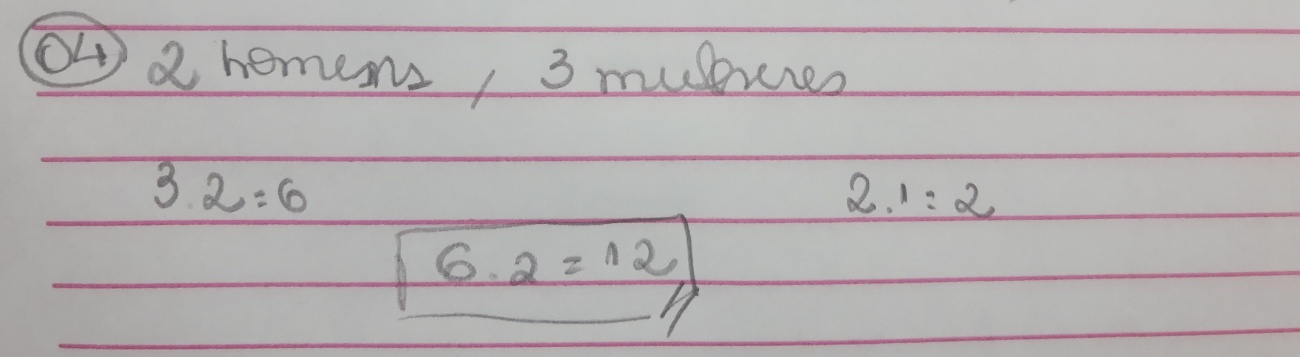 04 2 homens, 3 mulheres
3.2=6 2.1=2
6.2=12